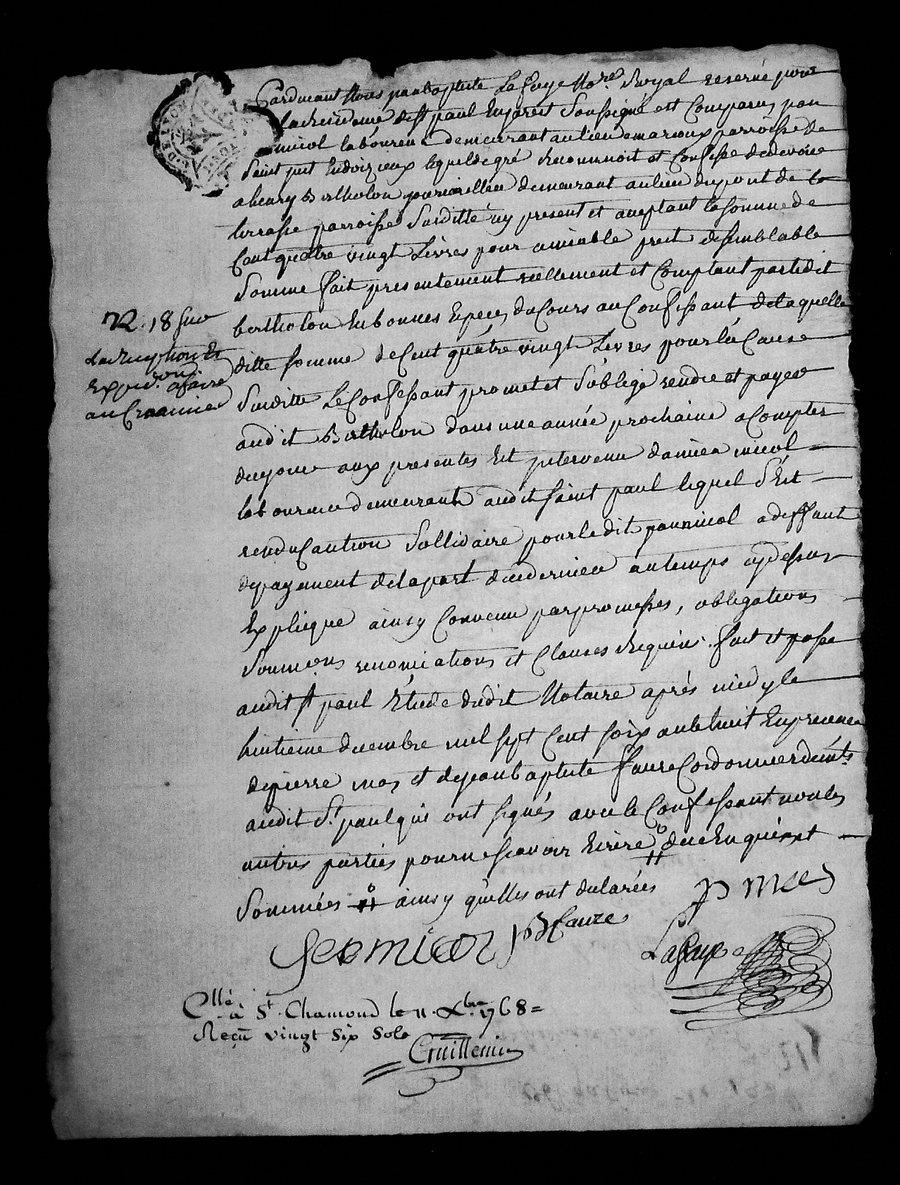 Pardevant Nous jeanbaptiste Lafaye No.re Royal reservé pour
la Residence de St paul En jarest Soussigné est Comparus jean
micol laboureur demeurant au lieu de marioux parroisse de
Saint just En doizieux lequel de gré Reconnoit et Confesse de devoir
a henry Bertholon demeurant au lieu du pont de la
terrasse parroisse Susditte icy present et aceptant la somme de
Cent quatre vingt Livres pour amiable prest de semblable
Somme fait presentement reellement et Comptant par ledit
bertholon En bonnes Espèces du Cours au Confessant de laquelle
ditte somme de Cent quatre vingt Livres pour la Cause
Susditte Le Confessant promet et s'oblige rendre et payer
audit Bertholon dans une année prochaine a Compter
de ce jour aux presentes Est intervenu damien micol
laboureur demeurant audit saint paul lequel S'est
rendu Caution Sollidaire pour ledit jean micol a deffaut
de payement de la part de ce dernier au temps cy dessus
Expliqué ainsy Convenu par promesses, obligations
Soumions renonciations et Clauses Requises. fait et passé
audit St paul Etude dudit Notaire après midy le
huitieme decembre mil sept Cent soixante huit En presence
de pierre mas et de jean baptiste faure Cordonnier demts.
audit St. paul qui ont signés avec le Confessant non les
autres parties pour ne scavoir Ecrire de ce Enquis et
Sommées ainsy qu'elles ont declarées
R. 18
la Reception Et
Expedon. a faire
au
p mas
jeo micol jB faure
Lafaye
Collé. à St. Chamond le 11. Xbre 1768=
Reçu vingt Six Sols
Guillemin